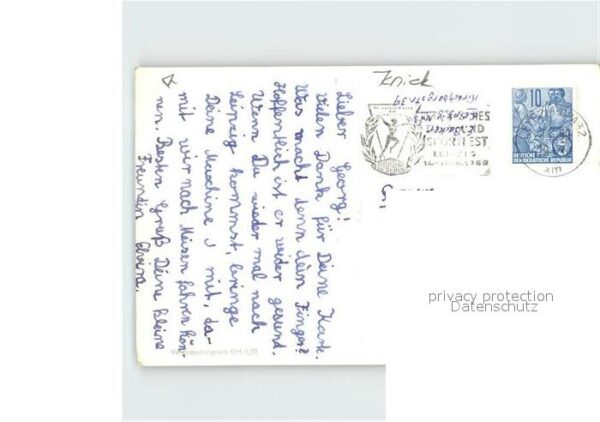 Lieber Georg!
Vielen Dank für Deine Karte.
Was macht denn dein Finger?
Hoffentlich ist er wieder gesund.
Wenn Du wieder mal nach
Leipzig kommst, bringe
Deine mit, da-
mit wir nach Meisen fahren kön-
nen. Besten Gruß Deine kleine
Freundin
Knick
Kirschbergstr. 39
SPORTFEST
10
DEUTSCHE
DEMOKRATISCHE REPUBLIK
Verbraucherpreis DM 0,20
privacy protection
Datenschutz